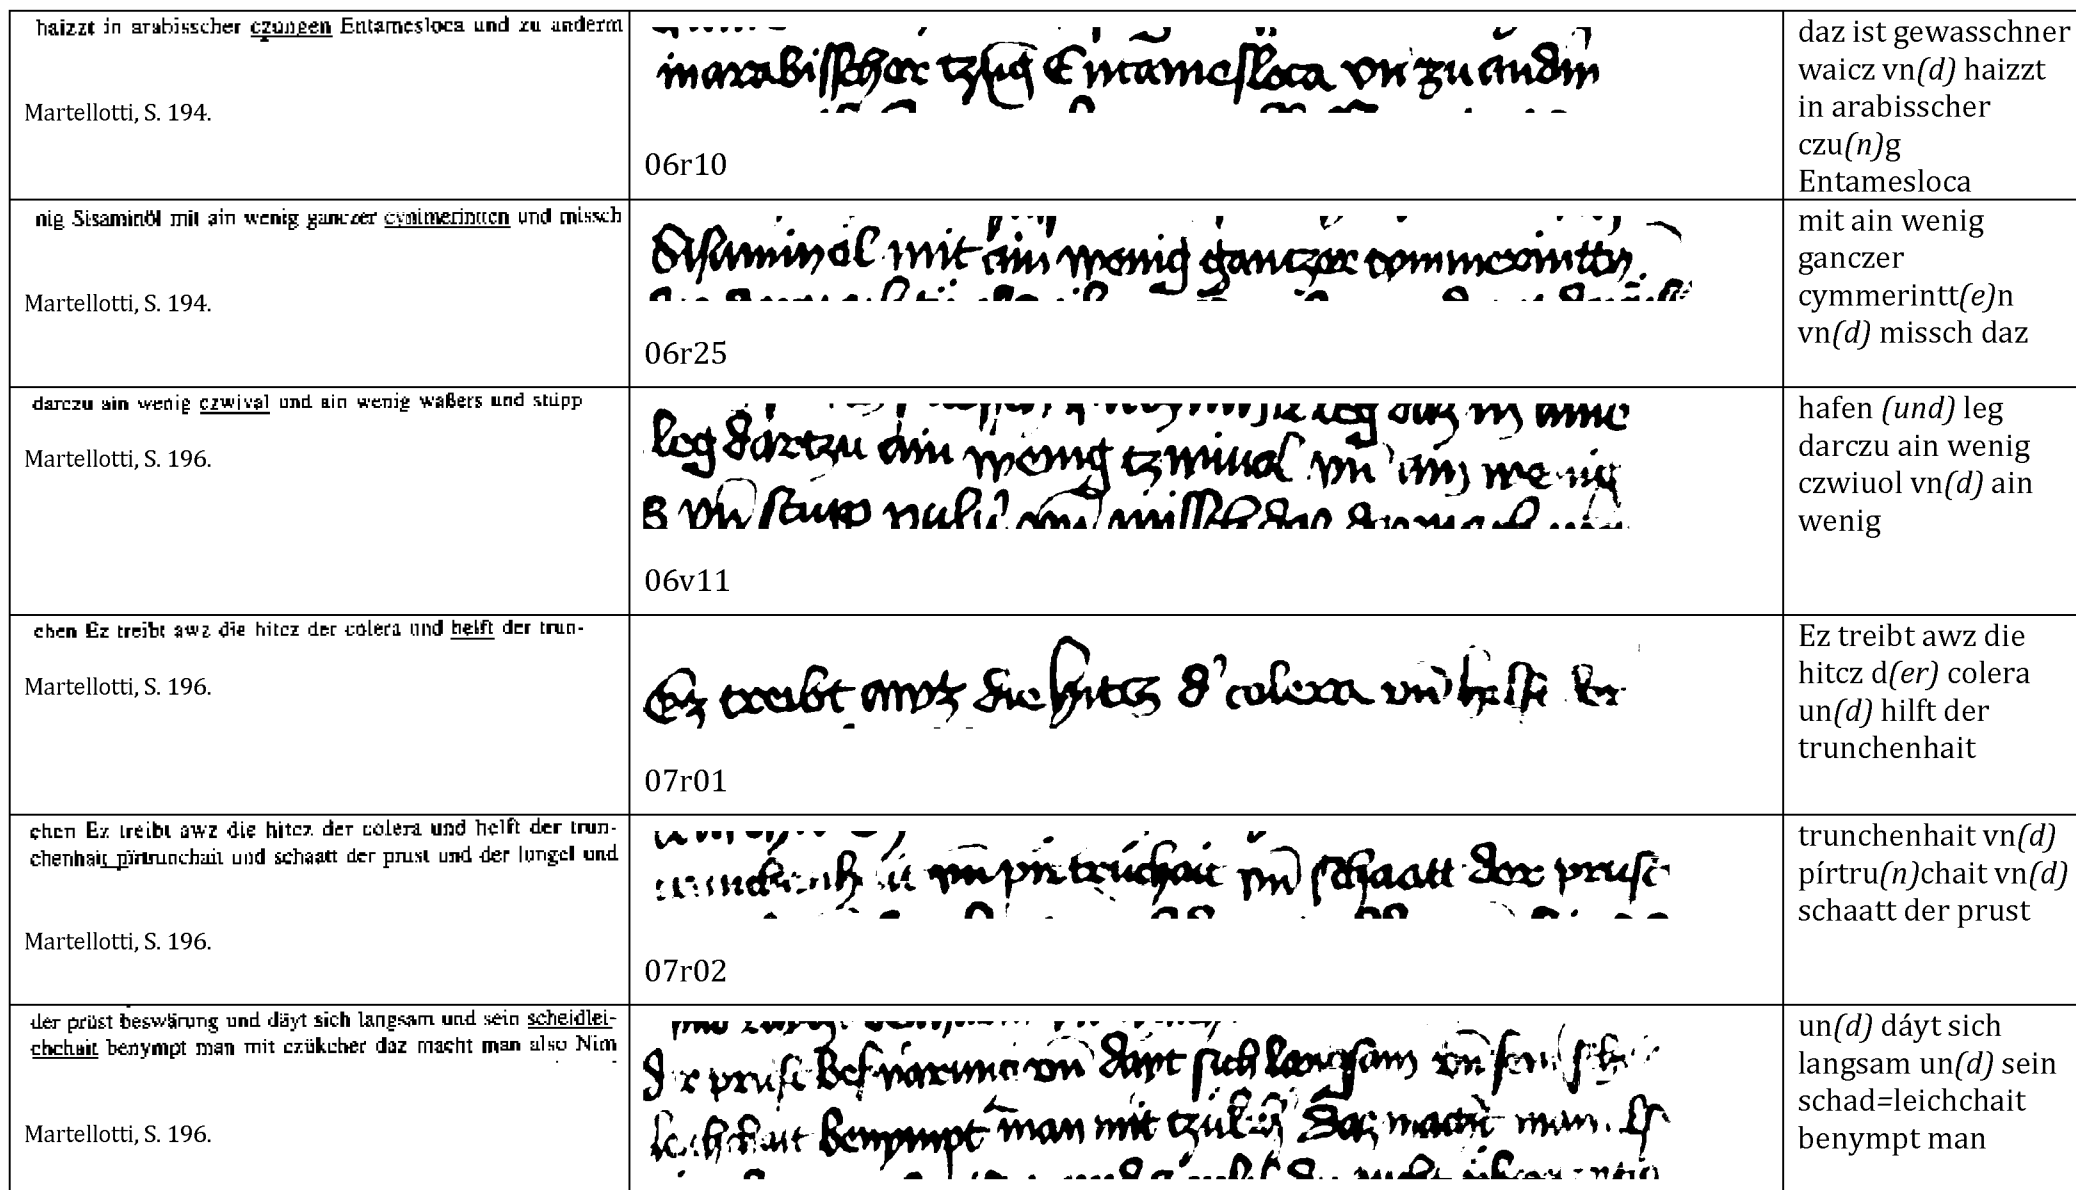 haizzt in arabisscher czungen Entamesloca und zu anderm
Martellotti, S. 194.
in arabisscher tzug Entamesloca vn zu andm
06r10
daz ist gewasschner
waicz vn(d) haizzt
in arabisscher
czu(n)g
Entamesloca
nig Sisaminöl mit ain wenig ganczer cynimerintten und missch
Martellotti, S. 194.
Sisaminöl mit ain wenig ganczer cymmerinttn
06r25
mit ain wenig
ganczer
cymmerintt(e)n
vn(d) missch daz
darczu ain wenig czwival und ain wenig waßers und stüpp
Martellotti, S. 196.
leg dartzu ain wenig tzwiuol vn ain wenig
06v11
hafen (und) leg
darczu ain wenig
czwiuol vn(d) ain
wenig
chen Ez treibt awz die hitcz der colera und helft der trun-
Martellotti, S. 196.
Ez treibt awz die hitcz d colera vn
07r01
Ez treibt awz die
hitcz d(er) colera
un(d) hilft der
trunchenhait
chen Ez treibt awz die hitcz der colera und helft der trun-
chenhait pirtrunchait und schaatt der prust und der lungel und
Martellotti, S. 196.
vn pirtruchait vn schaatt der prust
07r02
trunchenhait vn(d)
pírtru(n)chait vn(d)
schaatt der prust
der prüst beswärung und däyt sich langsam und sein scheidlei-
chchait benympt man mit czükcher daz macht man also Nim
Martellotti, S. 196.
prust beswarung vn dáyt sich langsam vn sein
benympt man mit daz macht man
un(d) dáyt sich
langsam un(d) sein
schad=leichchait
benympt man